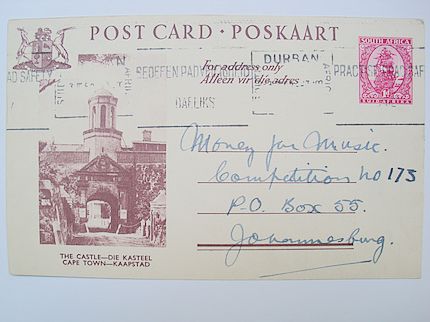 POST CARD · POSKAART
For address only
Alleen vir die adres
DURBAN
SOUTH AFRICA
1D
SUID-AFRIKA
SEOEFEN PADVEILIGHEID
DAELIKS
Money for Music.
Competition No 173
P.O. Box 55.
Johannesburg.
THE CASTLE—DIE KASTEEL
CAPE TOWN—KAAPSTAD